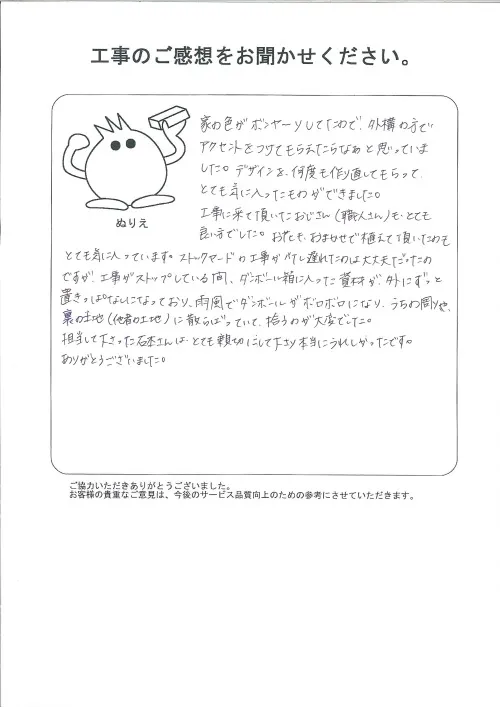 工事のご感想をお聞かせください。
家の色がボンヤーリしてたので、外構の方で
アクセントをつけてもらえたらなぁと思っていま
した。デザインを、何度も作り直してもらって、
とても気に入ったものができました。
ぬりえ
工事に来て頂いたおじさん(職人さん)も、とても
良い方でした。お花も、おまかせで植えて頂いたのも
とても気に入っています。ストックヤードの工事が少し遅れたのは大丈夫だったの
ですが、工事がストップしている間、ダンボール箱に入った資材が、外にずっと
置きっぱなしになっており、雨風でダンボールがボロボロになり、うちの周りや、
裏の土地(他者の土地)に散らばっていて、拾うのが大変でした。
担当して下さった石本さんは、とても親切にして下さり本当にうれしかったです。
ありがとうございました。
ご協力いただきありがとうございました。
お客様の貴重なご意見は、今後のサービス品質向上のための参考にさせていただきます。